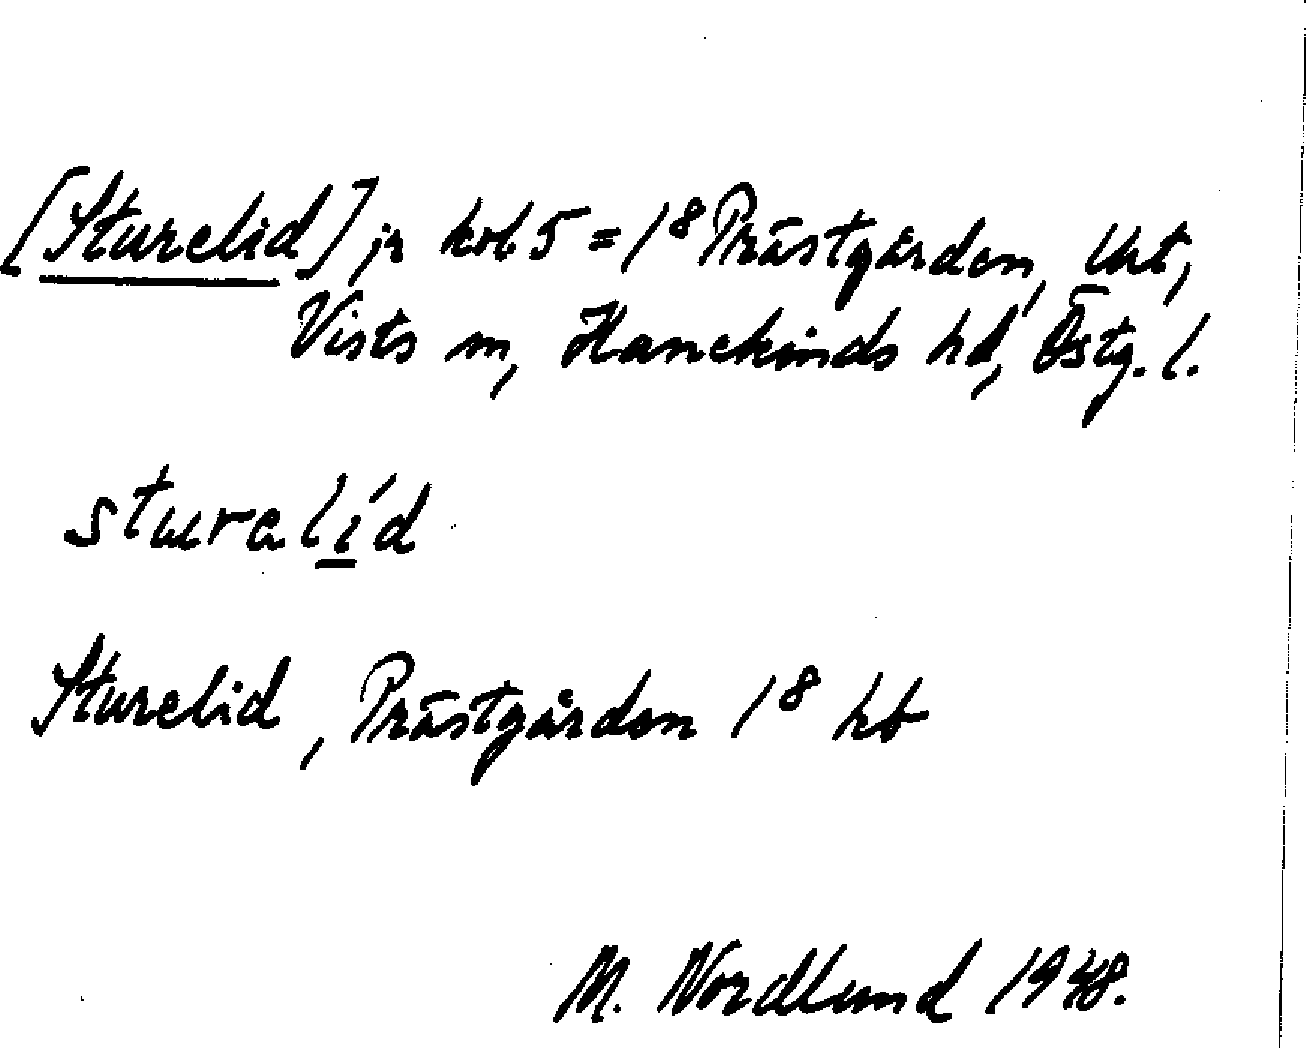 [Sturelid] jr kol. 5 = 1⁸ Prästgården,
Vists sn, Hanekinds hd, Östg. l.
sturalíd
Sturelid, Prästgården 1⁸ hb
M. Nordlund 1948.